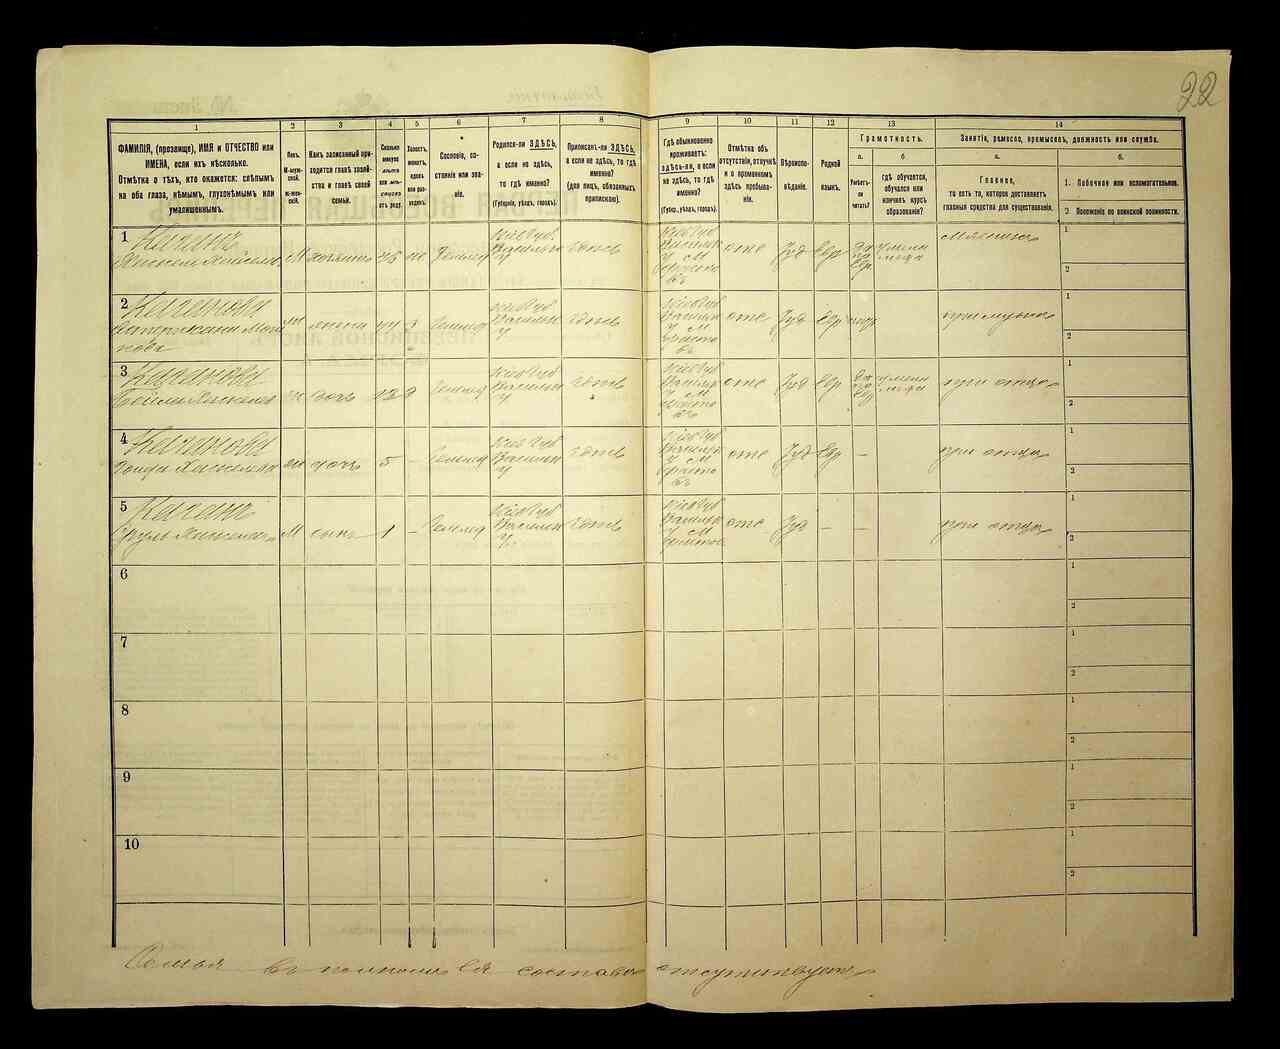 22
1
2
3
4
5
6
7
8
9
10
11
12
13
14
ФАМИЛІЯ, (прозвище), ИМЯ и ОТЧЕСТВО или
ИМЕНА, если ихъ нѣсколько.
Отмѣтка о тѣхъ, кто окажется: слѣпымъ
на оба глаза, нѣмымъ, глухонѣмымъ или
умалишеннымъ.
Полъ.
М-муж-
ской.
ж-жен-
скій.
Какъ записанный при-
ходится главѣ хозяй-
ства и главѣ своей
семьи.
Сколько
минуло
лѣтъ
или мѣ-
сяцевъ
отъ роду.
Холостъ,
женатъ,
вдовъ
или раз-
веденъ.
Сословіе, со-
стояніе или зва-
ніе.
Родился-ли ЗДѢСЬ,
а если не здѣсь,
то гдѣ именно?
(Губернія, уѣздъ, городъ).
Приписанъ-ли ЗДѢСЬ,
а если не здѣсь, то гдѣ
именно?
(для лицъ, обязанныхъ
припискою).
Гдѣ обыкновенно
проживаетъ:
здѣсь-ли, а если
не здѣсь, то гдѣ
именно?
(Губерн., уѣздъ, городъ).
Отмѣтка объ
отсутствіи, отлучкѣ
и о временномъ
здѣсь пребыва-
ніи.
Вѣроиспо-
вѣданіе.
Родной
языкъ.
Грамотность.
а.
Умѣетъ-
ли
читать?
б
гдѣ обучается,
обучался или
кончилъ курсъ
образованія?
Занятіе, ремесло, промыселъ, должность или служба.
а.
Главное,
то есть то, которое доставляетъ
главныя средства для существованія.
б.
1. Побочное или вспомогательное.
2 Положеніе по воинской повинности.
1
Каганъ
М
Кіев Губ
Васильк
У
здѣсь
Кіев Губ
Васильк
у М
отс
Іуд
Евр
1
2
2
Каганова
жена
44
Кіев Губ
Васильк
У
здѣсь
Кіев Губ
Васильк
у М
отс
Іуд
Евр
при мужѣ
1
2
3
Каганова
дочь
12
Кіев Губ
Васильк
У
здѣсь
Кіев Губ
Васильк
у М
отс
Іуд
Евр
при отцѣ
1
2
4
Каганова
дочь
5
-
Кіев Губ
Васильк
У
здѣсь
Кіев Губ
Васильк
у М
отс
Іуд
Евр
-
при отцѣ
1
2
5
Каганъ
М
сынъ
1
-
Кіев Губ
Васильк
У
здѣсь
Кіев Губ
Васильк
у М
отс
Іуд
-
-
при отцѣ
1
2
6
1
2
7
1
2
8
1
2
9
1
2
10
1
2
Семья въ полномъ составѣ отсутствуетъ